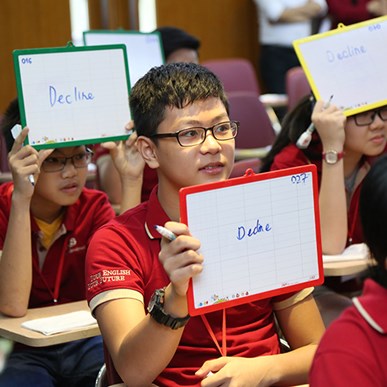 016
Decline
Decline
Decline
English
Future